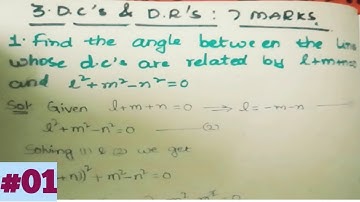 3. D.C's & D.R's : 7 MARKS.
1. Find the angle between the line
whose d.c's are related by l+m+n=0
and l²+m²-n²=0
Sol: Given l+m+n=0 → l=-m-n
l²+m²-n²=0 (2)
Solving (1) & (2) we get
+n))²+m²-n²=0
#01